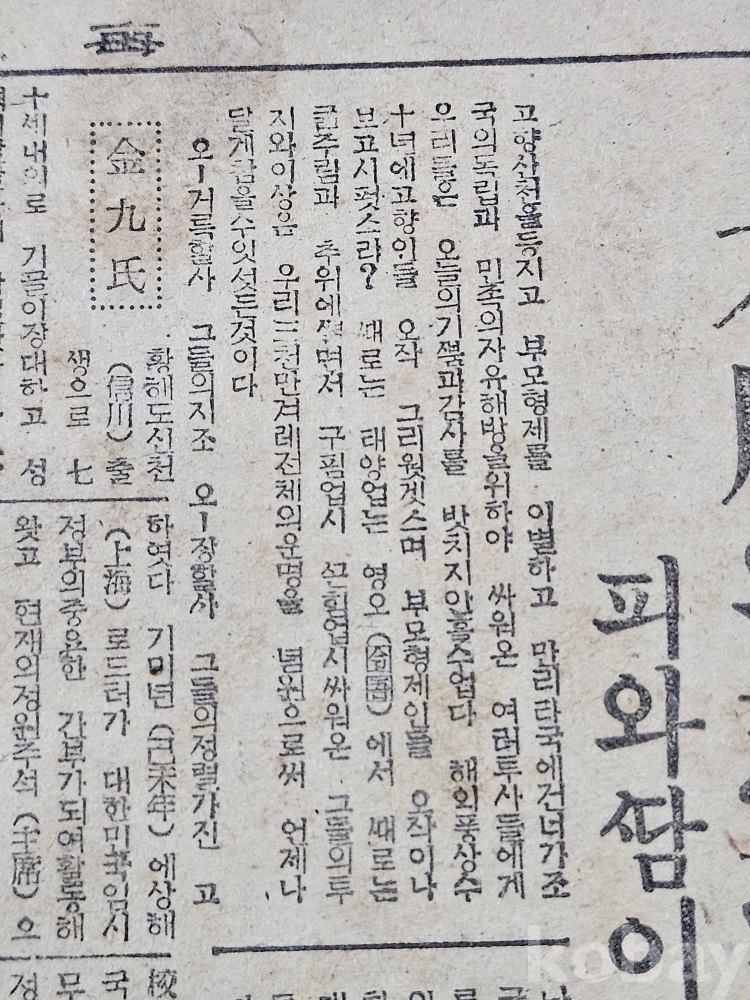 피와ᄯᅡᆷ이
고향산천을등지고 부모형제를 이별하고 만리타국에건너가조
국의독립과 민족의자유해방을위하야 싸워온 여러투사들에게
우리들은 오늘의기쁨과감사를 밧치지안흘수업다 해외풍상수
十년에고향인들 오작 그리웟겟스며 부모형제인들 오작이나
보고시펏스랴? ᄯᅢ로는 태양업는 영오(囹圄)에서 ᄯᅢ로는
굼주림과 추위에 구핌업시 그들의투
지와이상은 우리三천만겨레전체의운명을 념원으로써 언제나
달게감을수잇섯든것이다
오ー거륵할사 그들의지조 오ー장할사 그들의정렬가진 고
金九氏
황해도신천
(信川)출
생으로 七
十세내외로 기골이장대하고 성
하엿다 기미년(己未年)에상해
(上海)로드러가 대한민국임시
정부의중요한 간부가되여활동해
왓고 현재의정원주석(主席)으
校
국
무
정
kobay